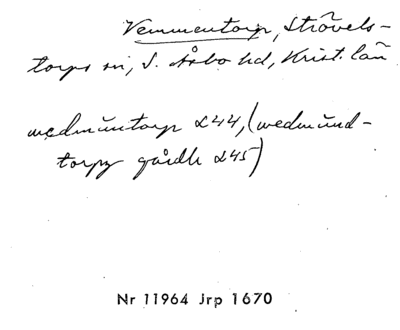 Vemmentorp, Strövels-
torps sn, S. Åsbo hd, Krist. län
wedmüntorp 244, (wedmünd-
torpz gårdh 245)
Nr 11964 Jrp 1670